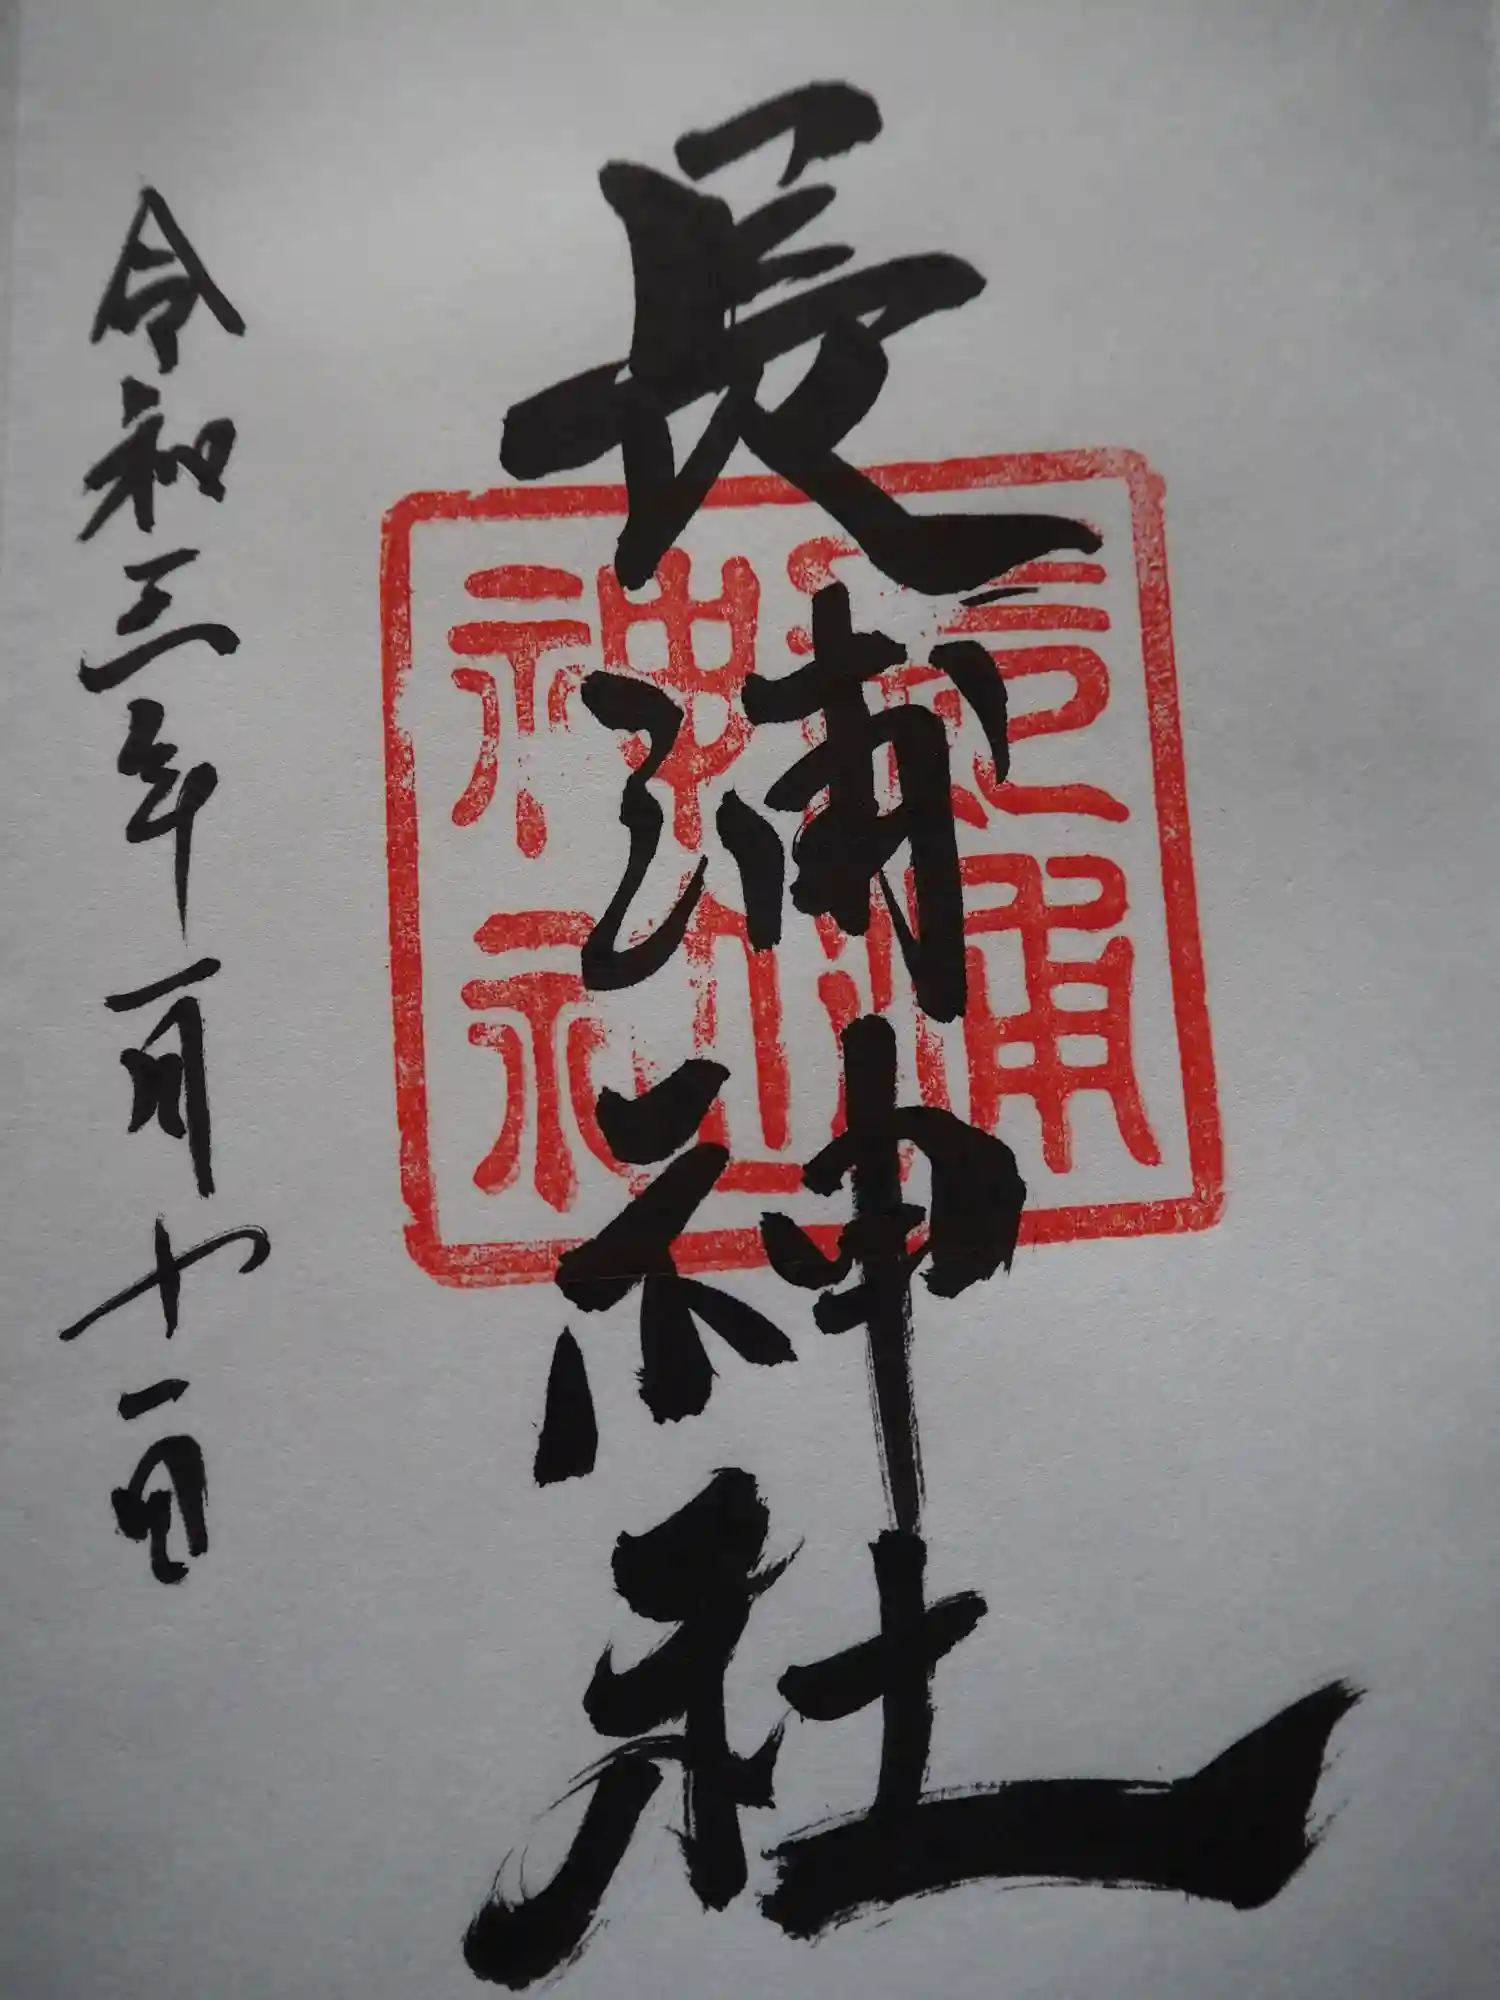 長浦神社
長浦
神社
令和三年一月十一日